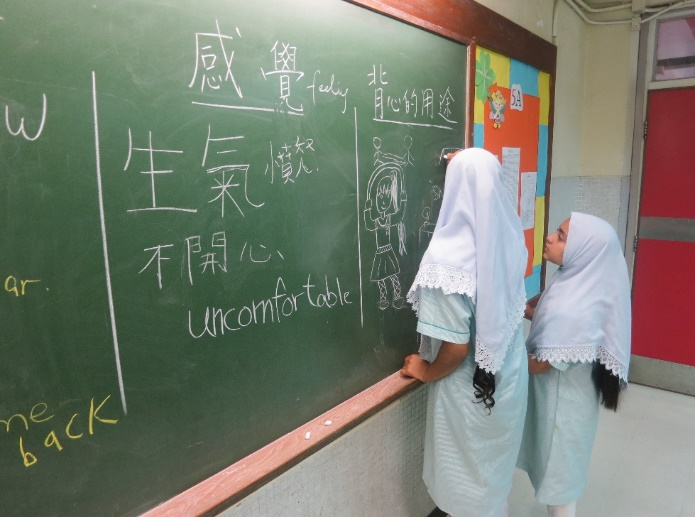 W
ar.
me
back
感覺 feeling
生氣 憤怒
不開心、
uncomfortable
背心的用途
5A